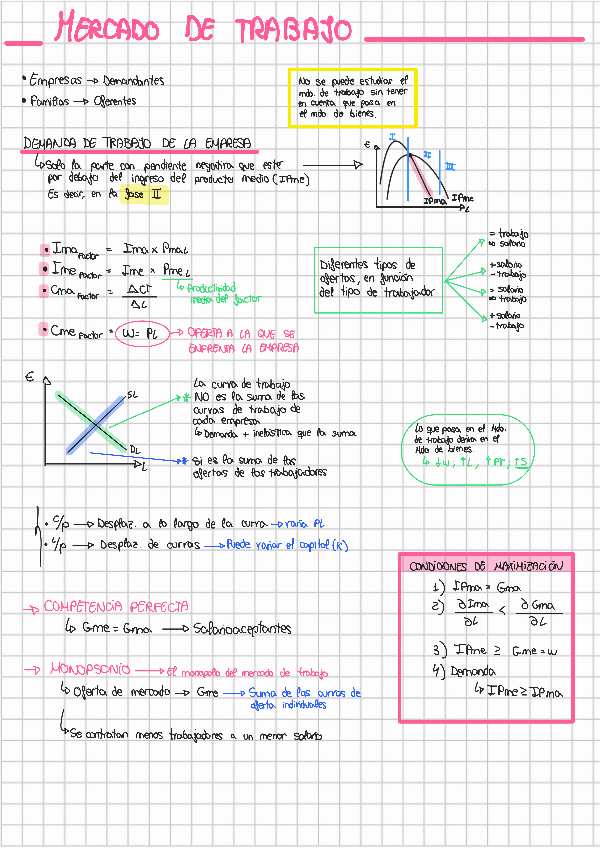 MERCADO DE TRABAJO
• Empresas → Demandantes
• Familias → Oferentes
No se puede estudiar el
mdo. de trabajo sin tener
en cuenta que pasa en
el mdo de bienes.
DEMANDA DE TRABAJO DE LA EMPRESA
↳ Solo la parte con pendiente negativa que este
por debajo del ingreso del producto medio (IPme)
Es decir, en la fase II
€
I
II
III
IPma
IPme
L
• Ima Factor = Ima x Pma L
• Ime Factor = Ime x Pme L
↳ Productividad
media del factor
• Cma Factor = ΔCT / ΔL
• Cme Factor = W = PL → OFERTA A LA QUE SE
ENFRENTA LA EMPRESA
Diferentes tipos de
ofertas, en función
del tipo de trabajador
= trabajo
∞ salario
+ salario
- trabajo
= salario
∞ trabajo
+ salario
- trabajo
€
SL
DL
L
La curva de trabajo
* NO es la suma de las
curvas de trabajo de
cada empresa
↳ Demanda + inelástica que la suma
* Si es la suma de las
ofertas de los trabajadores
Lo que pasa en el Mdo.
de trabajo deriva en el
Mdo de bienes
↳ ↓W, ↑L, ↑PT, ↑S
• C/p → Desplaz. a lo largo de la curva → varia PL
• L/p → Desplaz. de curvas → Puede variar el capital (K)
→ COMPETENCIA PERFECTA
↳ Gme = Gma → Salarioaceptantes
→ MONOPSONIO → El monopolio del mercado de trabajo
↳ Oferta de mercado → Gme → Suma de las curvas de
oferta individuales
↳ Se contratan menos trabajadores a un menor salario
CONDICIONES DE MAXIMIZACIÓN
1) IPma = Gma
2) ∂Ima / ∂L < ∂Gma / ∂L
3) IPme ≥ Gme = w
4) Demanda
↳ IPme ≥ IPma